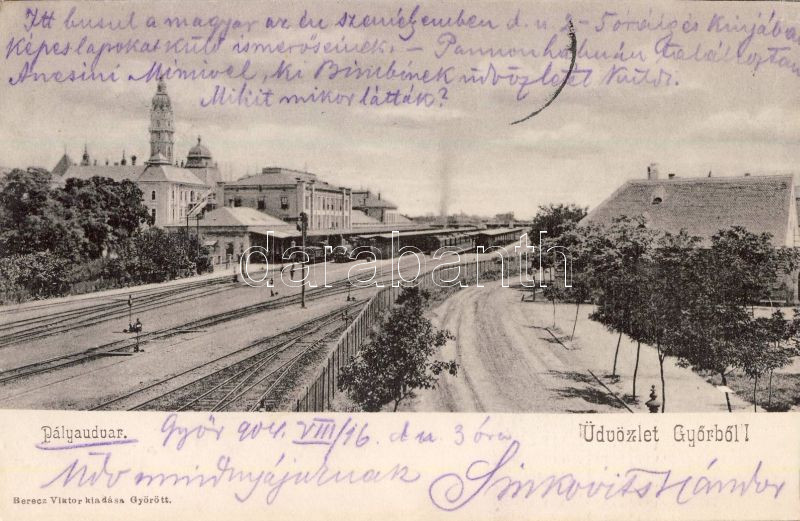 Itt busul a magyar az én személyemben d. u. 2-5 óráig és kinjába
Képeslapokat küld ismerőseinek. - Pannonhalmán találkoztam
Ancsini Mimivel, ki Bimbinek üdvözletet küldi.
Mikit mikor látták?
darabanth
Pályaudvar.
Győr 904. VIII/16 d u 3 óra
Üdvözlet Győrből!
Üdv mindnyájuknak Sinkovits Nándor
Berecz Viktor kiadása Győrött.